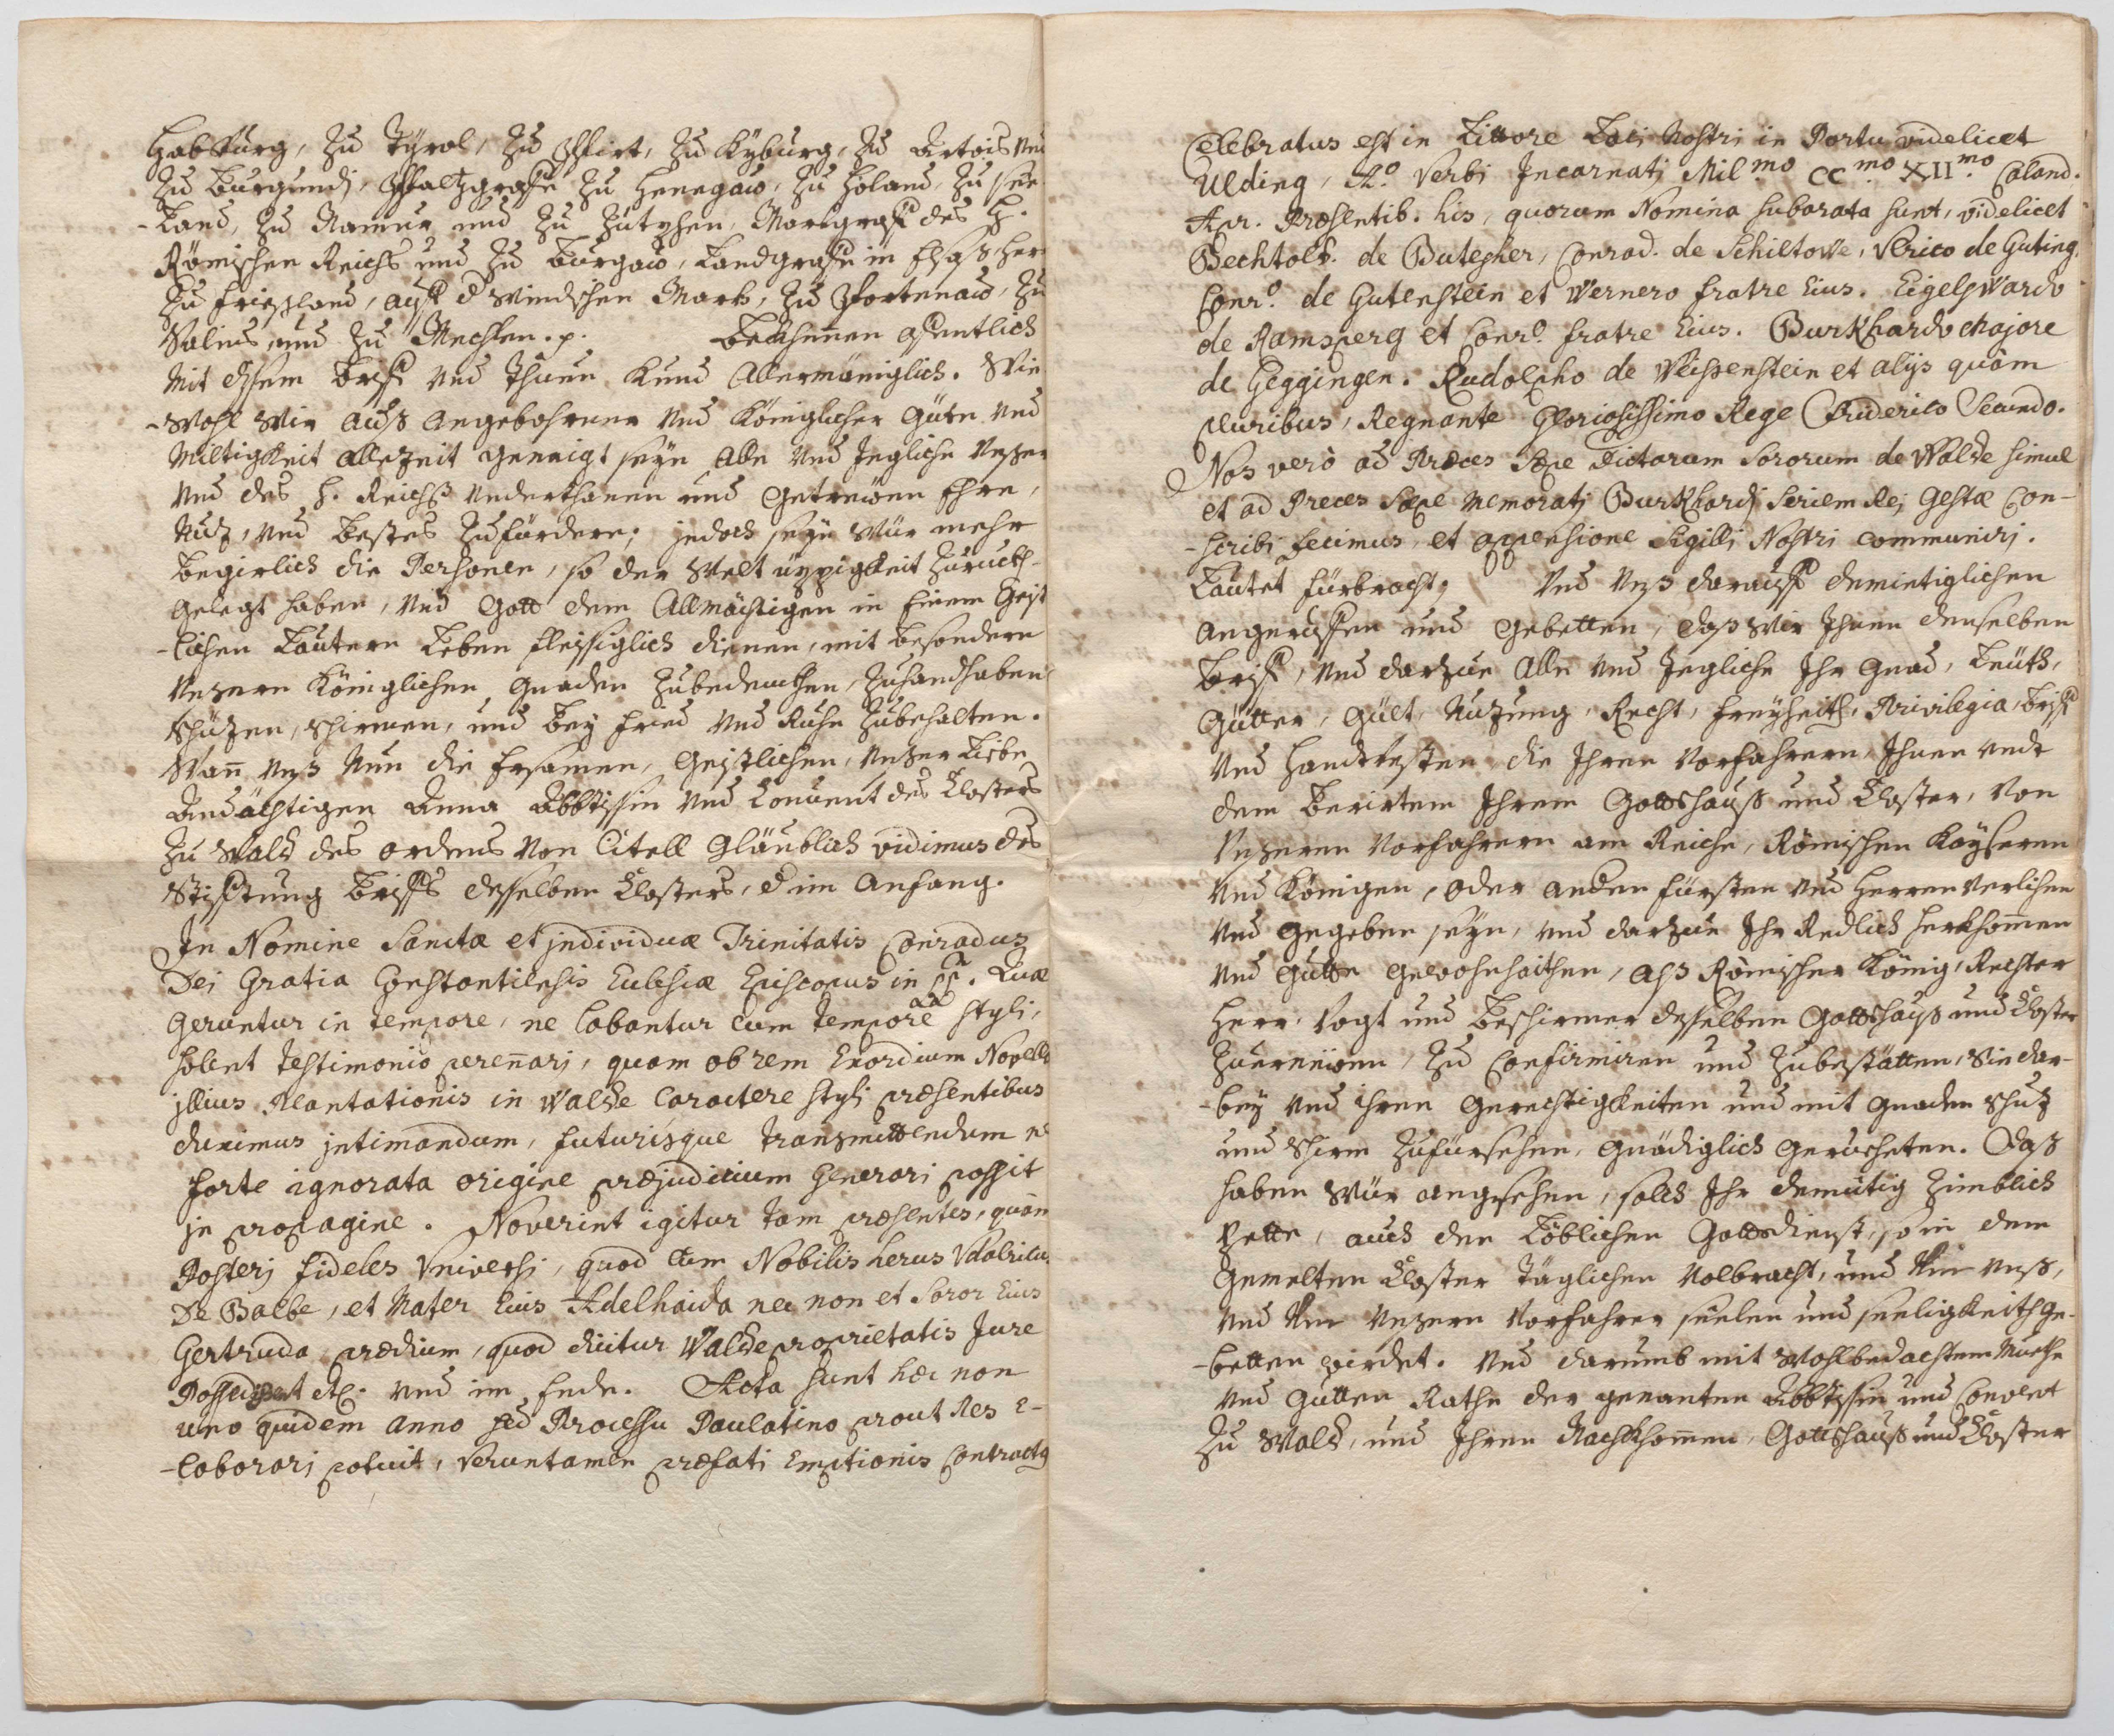 Habspurg, zu Tÿrol, zu Pfirt, zu Kÿburg, zu Artois vnd
zu Burgundj, Pfaltzgraffe zu Henegaw, zu Holand, zu See
-Land, zu Namur und zu Zutphen, Margraff des H.
Römischen Reichs und zu Burgaw, Landgraffe in Elsaß Herr
zu Frießland, auff d Windischen Mark, zu Portenaw, zu
Salins und zu Mechlen. p. Bekhennen offentlich
mit disem Brieff und Thuen Kund Allermäniglich. Wie
-Wohl Wir auß angebohrner und Königlicher Güte und
Miltigkeit allezeit genaigt seyn alle und Jegliche Unser
und des H. Reichß Underthanen und Getrewen Ehre,
Nuz, und Bestes zufürdere; jedoch seyn Wür mehr
begirlich die Personen, so der Welt üppigkeit zuruckh
gelegt haben, und Gott dem Allmächtigen in Einem Geist
-lichen Lautern Leben fleissiglich dienen, mit besondern
Unsern Königlichen Gnaden zubedenckhen, zuhandhaben
schüzen, schirmen, und bey Frid und Ruhe zubehalten.
Wan̄ Unß Nun die Ersamen, Geistlichen, Unser Liebe
Andächtigen Anna Abbtissin und Conuent des Closters
zu Wald des ordens von Citell Gläublich vidimus des
Stifftung Brieffs desselben Closters, d im Anfang.
In Nomine Sanctæ et jndividuæ Trinitatis Conradus
Dei Gratia Constantiensis Eclesiæ Episcopus in Quæ
Geruntur in tempore, ne labantur cum tempore styli,
solent testimonio peren̄arj, quam ob rem Exordium Novellæ
jllius Plantationis in Walde caractere styli præsentibus
duximus jntimandum, futurisque transmittendum ne
forte ignorata origine præjudicium Generari possit
jn propagine. Noverint igitur tam præsentes, quàm
Posterj fideles Vniversi, quod cum Nobilis herus Vdalricus
De Balbe, et Mater Eius Adelhaida nec non et Soror Eius
Gertruda prædium, quod dicitur Walde proprietatis Jure
und im Ende. Acta sunt hæc non
uno quidem anno sed Processu Paulatino prout Res E-
-laborarj potuit, Veruntamen præfati Emptionis Contractus
Celebratus est in Littore Laci Nostri in Portu videlicet
Ulding, Ao. Verbi Jncarnatj Mil.mo CC.mo XII.mo Caland.
Apr. Præsentib. his, quorum Nomina subarata sunt, videlicet
Bechtold. de Butesher, Conrad. de Schiltowe, Verico de Guting,
Conro. de Gutenstein et Wernero fratre Eius. Eigelswardo
de Ramsperg et Conro. fratre Eius. Burkhardo Majore
de Geggingen. Rudolpho de Weissenstein et alijs quàm
pluribus, Regnante Gloriosissimo Rege Friderico Secundo.
Nos verò ad Præces Sæpe Dictarum Sororum de Walde simul
et ad Preces Sæpe Memoratj Burkhardj Seriem Rej Gestæ Con-
-scribi fecimus, et appensione Sigilli Nostri communirj.
Lautet fürbracht; Und Unß darauff demietiglichen
Angeruffen und gebetten, daß Wir Ihnen denselben
Brieff, und darzue Alle und Jegliche Ihr Gnad, Leüth,
Gütter, Gült, Nuzung, Recht, Freyheith, Privilegia, Brieff
und Handtvesten die Ihren Vorfahrern Ihnen undt
dem Berirtem Ihrem Gottshauß und Closter, von
Unseren Vorfahrern am Reiche, Römischen Kaÿseren
und Königen, oder anden Fürsten und Herren verlihen
und gegeben seyn, und darzue Ihr Redlich herkhom̄en
und Gutte gewohnhaithen, Alß Römischer König, Rechter
Herr, Vogt und Beschirmer desselben Gottshauß und Closter
zuerneüwen, zu Confirmiren und zubestätten, Sie dar-
-bey und ihren Gerechtigkeiten und mit Gnaden Schuz
und Schirm zufürsehen, Gnädiglich Gerucheten. Daß
haben Wür angesehen, solch Ihr demütig Zimblich
Bette, auch den Löblichen Gottsdienst, so in dem
gemelten Closter Täglichen Volbracht, und Vm Unß,
und Vm Unsern Vorfahrer seelen und seeligkeith ge-
-betten wirdet. Und darumb mit Wohlbedachtem Muethe
und Gutten Rathe der genanten Abbtissin und Convent
zu Wald, und Ihren Nachkhom̄en, Gottshauß und Closter